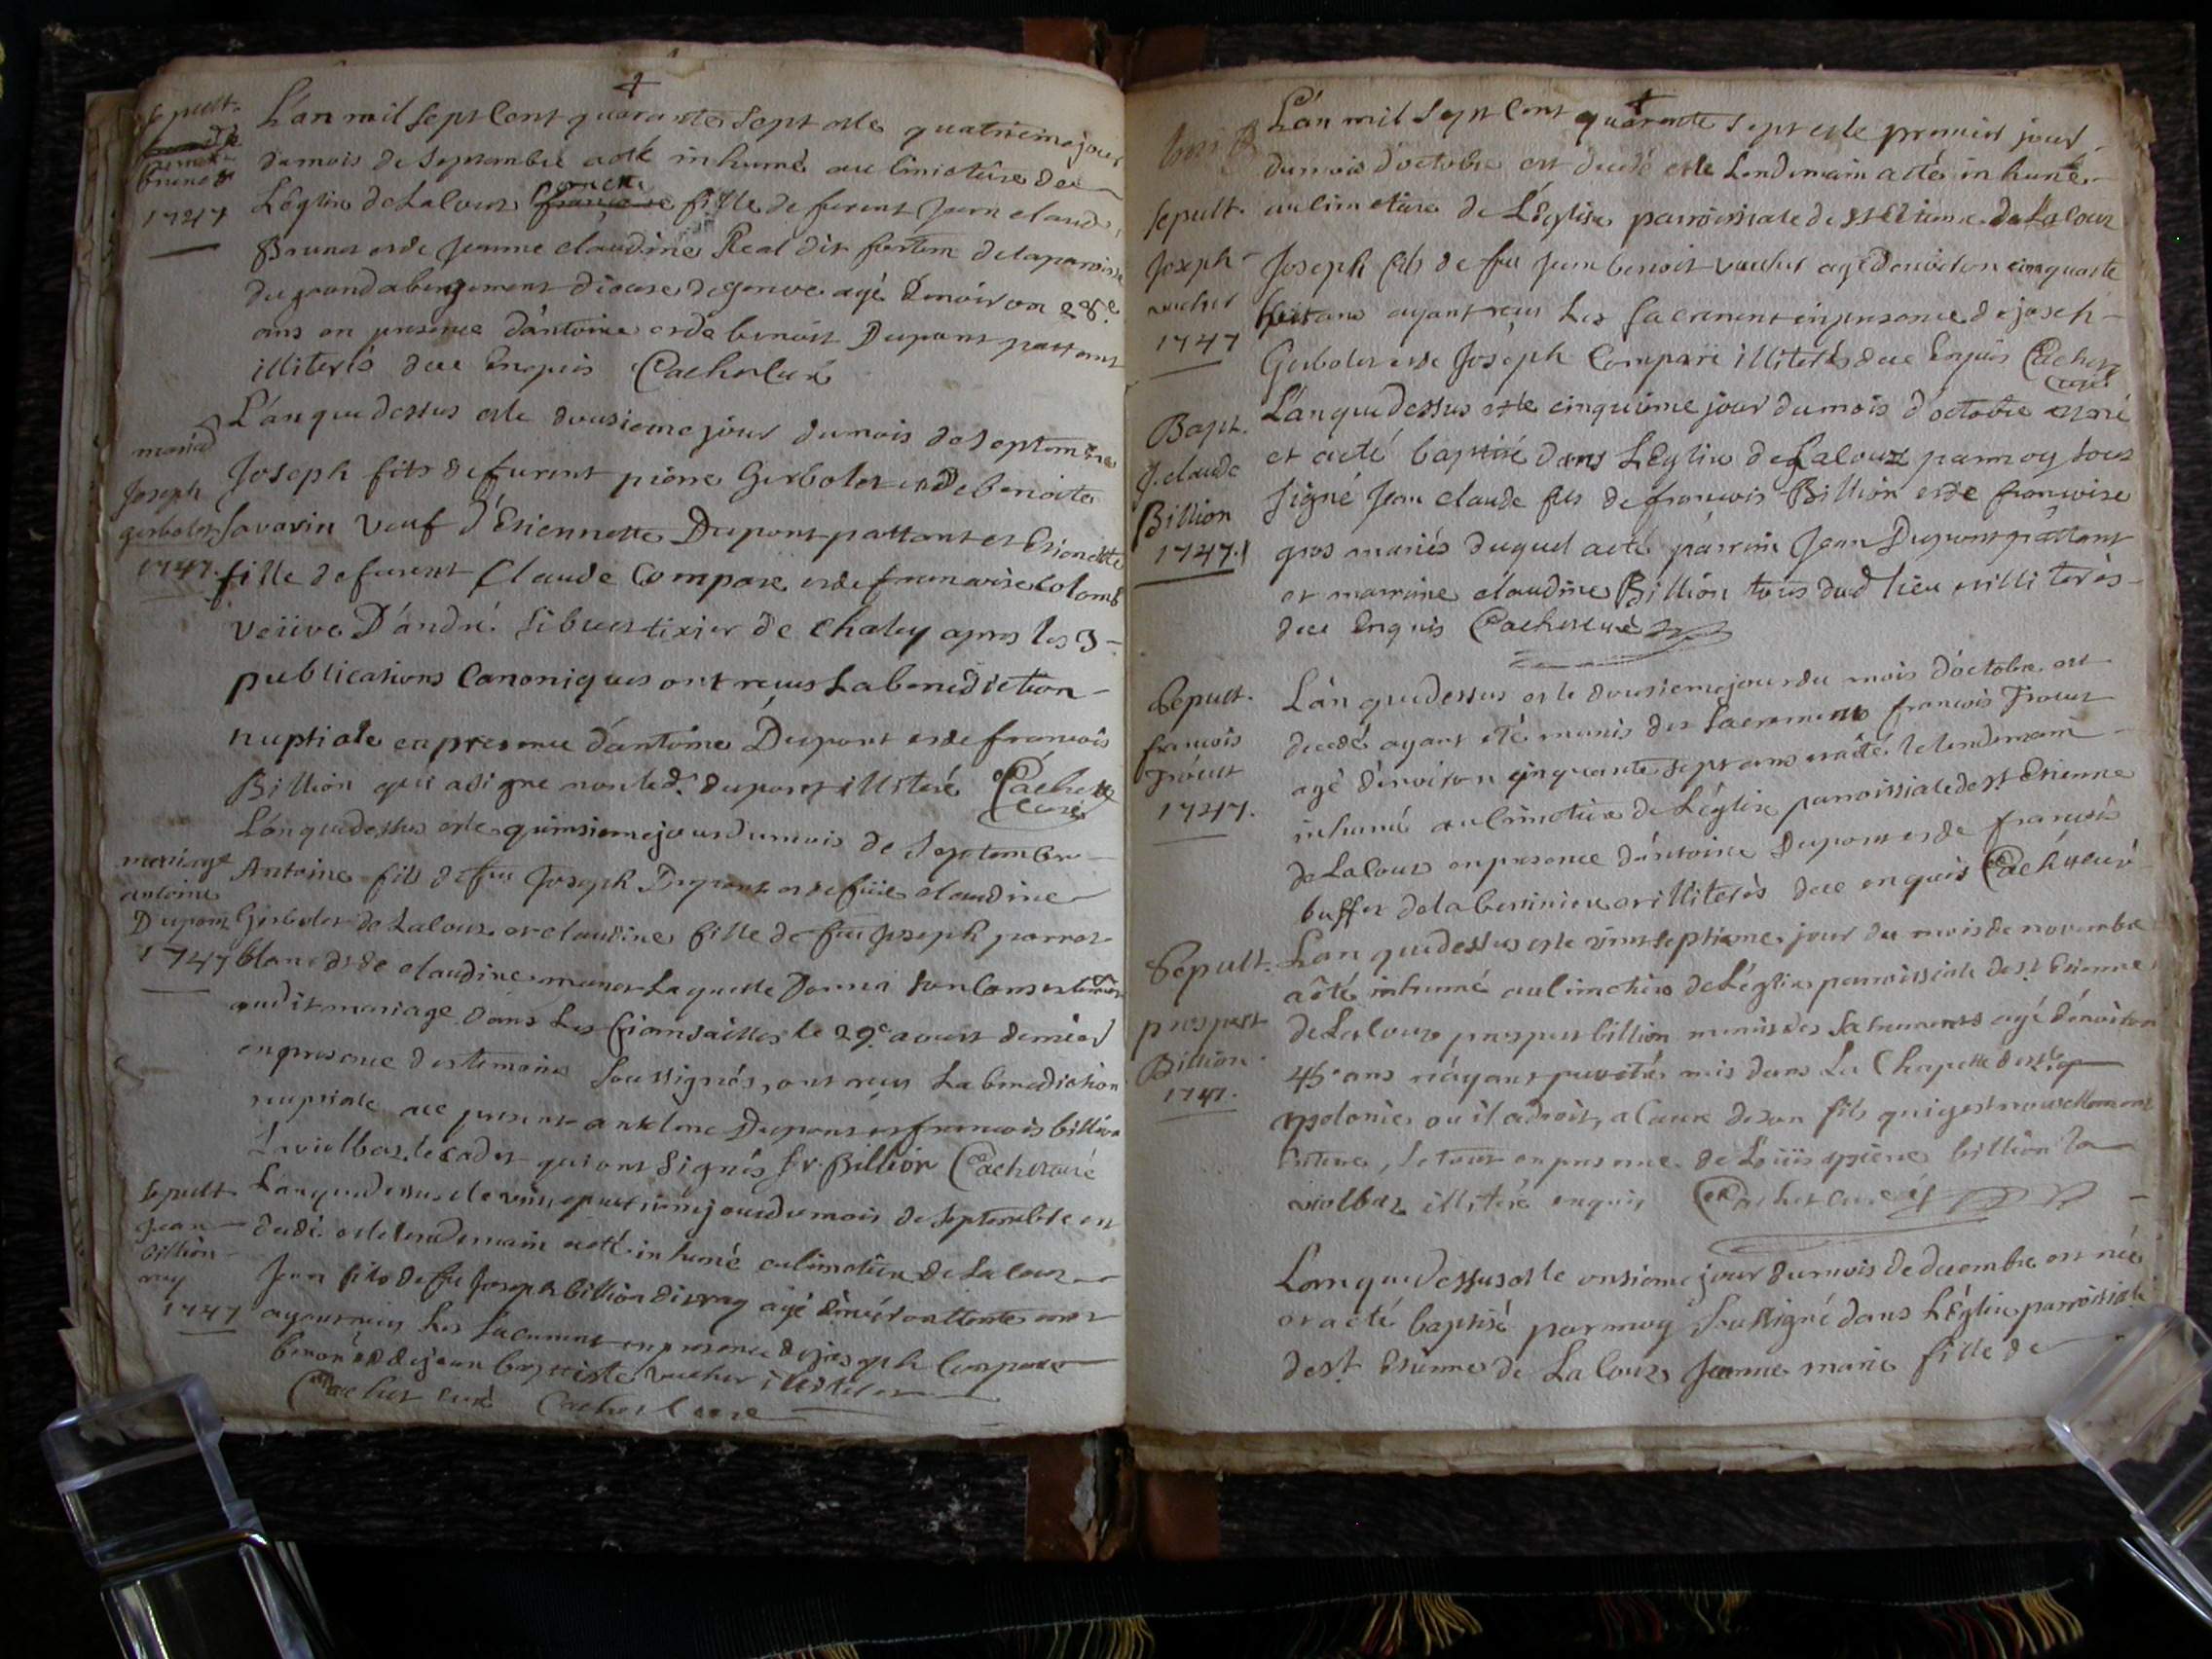 Sepult.
brunet
1747
L'an mil sept Cent quarante sept et le quatrieme jour
du mois de Septembre a eté inhumé au Cimetiere de
L'église de Lalouz fille de furent Jean claude
Brunet et de Jeanne claudine Real dit de la parroisse
du grand abergement diocese de geneve agé d'environ 28e
ans en presence d'antoine et de benoist Dupont pattant
illiterés de ce Enquis Cachet Curé
mariag
Joseph
gerbolet
1747
L'an que dessus et le dousieme jour du mois de Septembre
Joseph fils de furent pierre Gerbolet et de benoite
Savarin Veuf d'Etiennette Dupont pattant et Etiennette
fille de furent Claude Compare et de francoise Colomb
veüve D'andré tixier de Chaley apres les 3
publications Canoniques ont reçus La benediction
nuptiale en presence d'antoine Dupont et de francois
Billion qui a signe non led. dupont illiteré Cachet
Curé
mariage
antoine
Dupont
1747
L'an que dessus et le quinsieme jour du mois de Septembre
Antoine fils de feu Joseph Dupont et de füe claudine
Gerbolet de Lalouz et claudine fille de feu Joseph parrot
blanc et de claudine Laquelle Donna Son Consentement
audit mariage dans Les fiansailles le 29e aoust dernier
en presence des temoins Soussignés, ont reçu La benediction
nuptiale ace presents antoine Dupont et francois billion
Laviolbaz le cadet qui ont Signés fr. Billion Cachet curé
Sepult.
Jean
billion
1747
L'an que dessus et le jour du mois de Septembre est
decedé et le lendemain a eté inhumé au Cimetiere de Lalouz
Jean fils de feu Joseph billion dit agé d'environ trente ans
ayant reçu Les Sacrement en presence de joseph Compare
et de jean baptiste vucher illiteré
Cachet curé Cachet Curé
L'an mil Sept Cent quarante Sept et le premier jour
du mois d'octobre est decedé et le Lendemain a eté inhumé
Sepult.
Joseph
vucher
1747
au Cimetiere de L'église parroissiale de St Etienne de Lalouz
Joseph fils de feu Jean benoit vucher agé d'environ cinquante
huit ans ayant reçu Les Sacrement en presence de joseph
Gerbolet et de Joseph Compare illiterés de ce Enquis Cachet
Curé
Bapt.
J. claude
Billion
1747.
L'an que dessus et le cinquieme jour du mois d'octobre est né
et a eté baptisé dans L'Eglise de Lalouz par moy Sous
signé Jean claude fils de francois Billion et de francoise
gros mariés duquel a eté parrain Jean Dupont pattant
et marraine claudine Billion tous dud. lieu et illiterés
de ce Enquis Cachet curé
Sepult.
francois
1747.
L'an que dessus et le dousieme jour du mois d'octobre est
decedé ayant eté munis des Sacrements francois
agé d'environ cinquante sept ans et a eté le lendemain
inhumé au Cimetiere de L'église parroissiale de St Etienne
de Lalouz en presence d'antoine Dupont et de francois
buffet de la et illiterés de ce enquis Cachet curé
Sepult.
prosper
Billion
1747.
L'an que dessus et le vint septieme jour du mois de novembre
a eté inhumé au Cimetiere de L'église parroissiale de St Etienne
de Lalouz prosper billion munis des Sacrements agé d'environ
45e ans n'ayant pu eté mis dans La Chapelle de Ste
apolonie ou il a droit, a Cause de son fils qui y est nouvellement
, Le tout en presence de Loüis pierre billion la
violbaz illiteré enquis Cachet curé
L'an que dessus et le onsieme jour du mois de decembre est née
et a eté baptisé par moy Soussigné dans L'Eglise parroissiale
de St Etienne de Lalouz Jeanne marie fille de